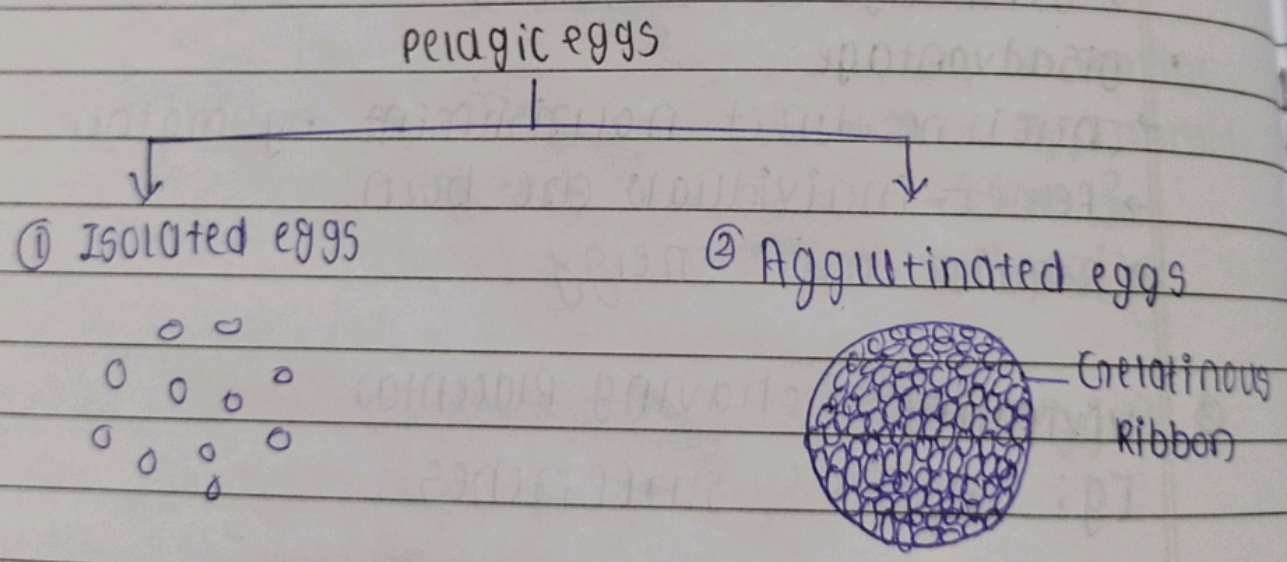 pelagic eggs
① Isolated eggs
② Agglutinated eggs
Gelatinous
Ribbon